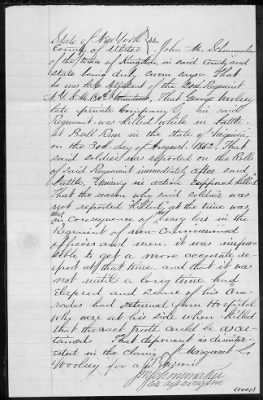 State of New York } ss
County of Ulster } John M. Schoonmaker
of the town of Kingston in said County and
State being duly sworn says That
he was late Adjutant of the 20th Regiment
N.Y.S.M. That George Woolsey
late private Company said
Regiment was killed while in battle
at Bull Run in the State of Virginia
on the 30th day of August 1862. That
said soldier was reported on the Rolls
of said Regiment immediately after said
battle, Missing in action supposed killed
That the reason why said soldier was
not reported Killed, at the time was
in consequence of heavy loss in the
Regiment of non-Commissioned
officers and men it was impos-
sible to get a more accurate re-
port at that time, and that it was
not until a long time had
elapsed and some of his com-
rades had returned from Hospital
who were at his side when killed
that the exact truth could be ascer-
tained. That deponent is disinter-
ested in the claim of Margaret
Woolsey for a Pension
Schoonmaker
late
(over)